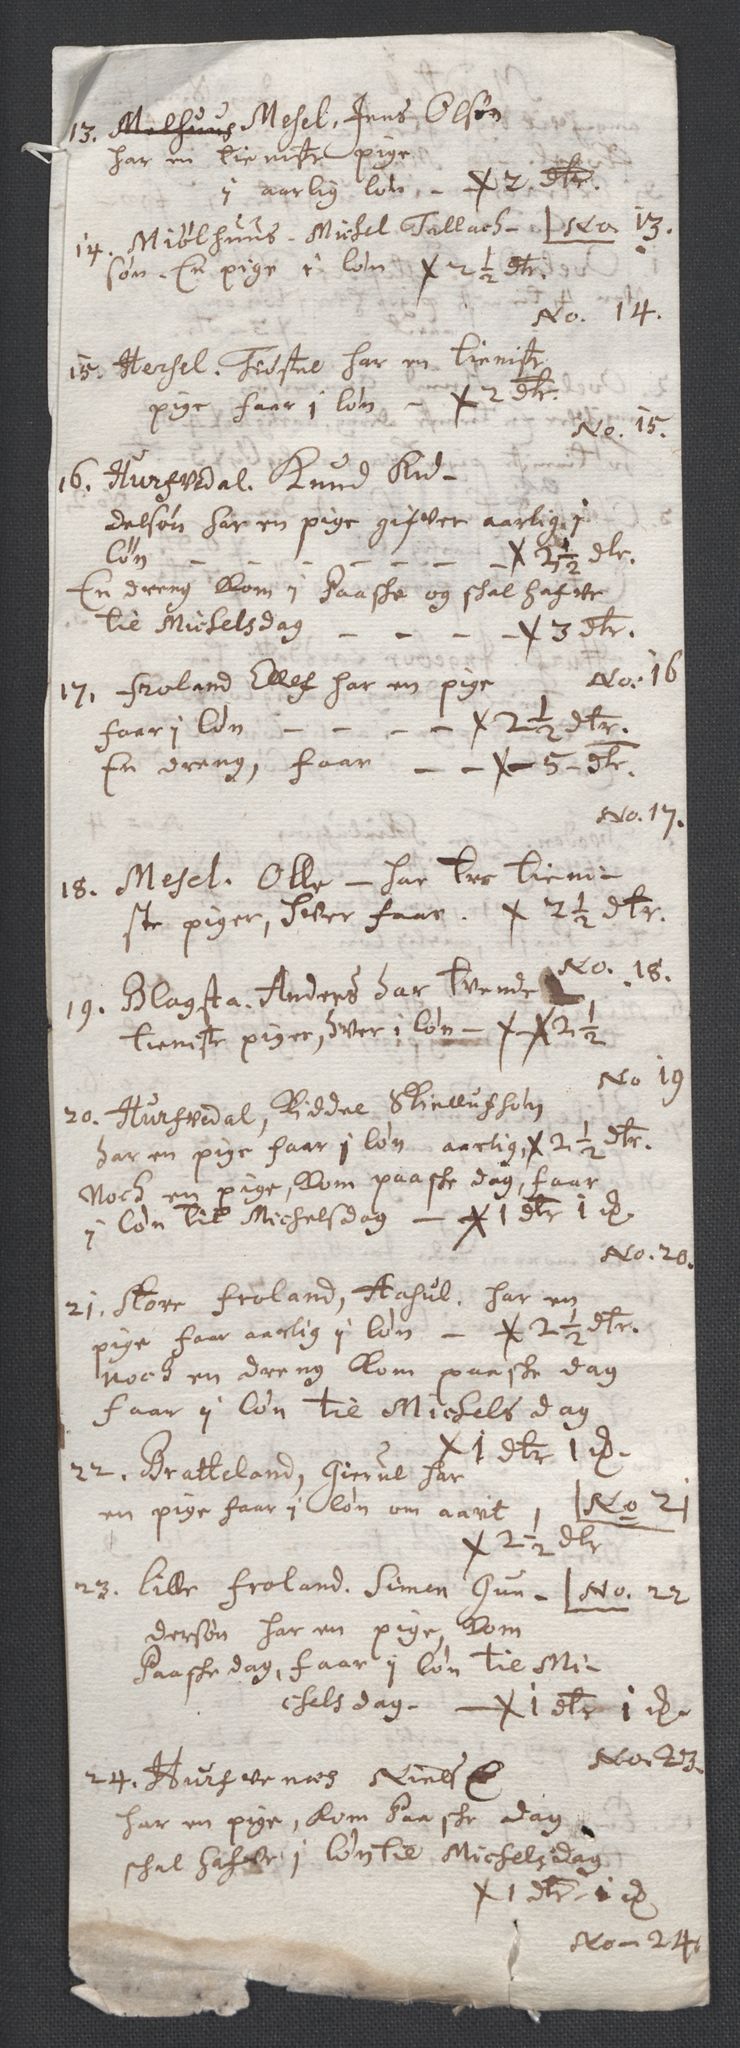 13. Melhuus Mesel, Jens Olsøn
har en tieniste pige
i aarlig løn - X 2 dlr.
No. 13.
14. Miølhuus - Michel Tallach-
søn. En pige i løn X 2 1/2 dlr.
No. 14.
15. Hersel. har en tieniste
pige faar i løn - X 2 dlr.
No. 15.
16. Hurfvedal. Knud Kid-
delsøn har en pige gifver aarlig i
løn - - - - - - - X 2 1/2 dlr.
En dreng kom i Paaske og skal hafve
til Michelsdag - - - - X 3 dlr.
No. 16
17. Froland Ellef har en pige
faar i løn - - - - X 2 1/2 dlr.
En dreng, faar - - X - 5 - dlr.
No. 17.
18. Mesel. Olle - har tre tieni-
ste piger, hver faar. X 2 1/2 dlr.
No. 18.
19. Blagsta. Anders har tvende
tieniste piger, hver i løn - X - X 2 1/2
No 19
20. Hurfvedal, Kiddel
har en pige faar i løn aarlig, X 2 1/2 dlr.
Noch en pige, kom paaske dag, faar
i løn til Michelsdag - X 1 dlr 1
No. 20.
21. Store Froland, Aasul. har en
pige faar aarlig i løn - X 2 1/2 dlr.
Noch en dreng kom paaske dag
faar i løn til Michels dag
X 1 dlr 1
No 21
22. Bratteland, Gierul har
en pige faar i løn om aarit
X 2 1/2 dlr
No. 22
23. Lille Froland. Simen Gun-
dersøn har en pige, kom
Paaske dag, faar i løn til Mi-
chels dag - - X 1 dlr 1
No. 23.
24. Hurfvenæs Niels
har en pige, kom Paaske dag
skal hafve i løn til Michelsdag
X 1 dlr - 1
No - 24.